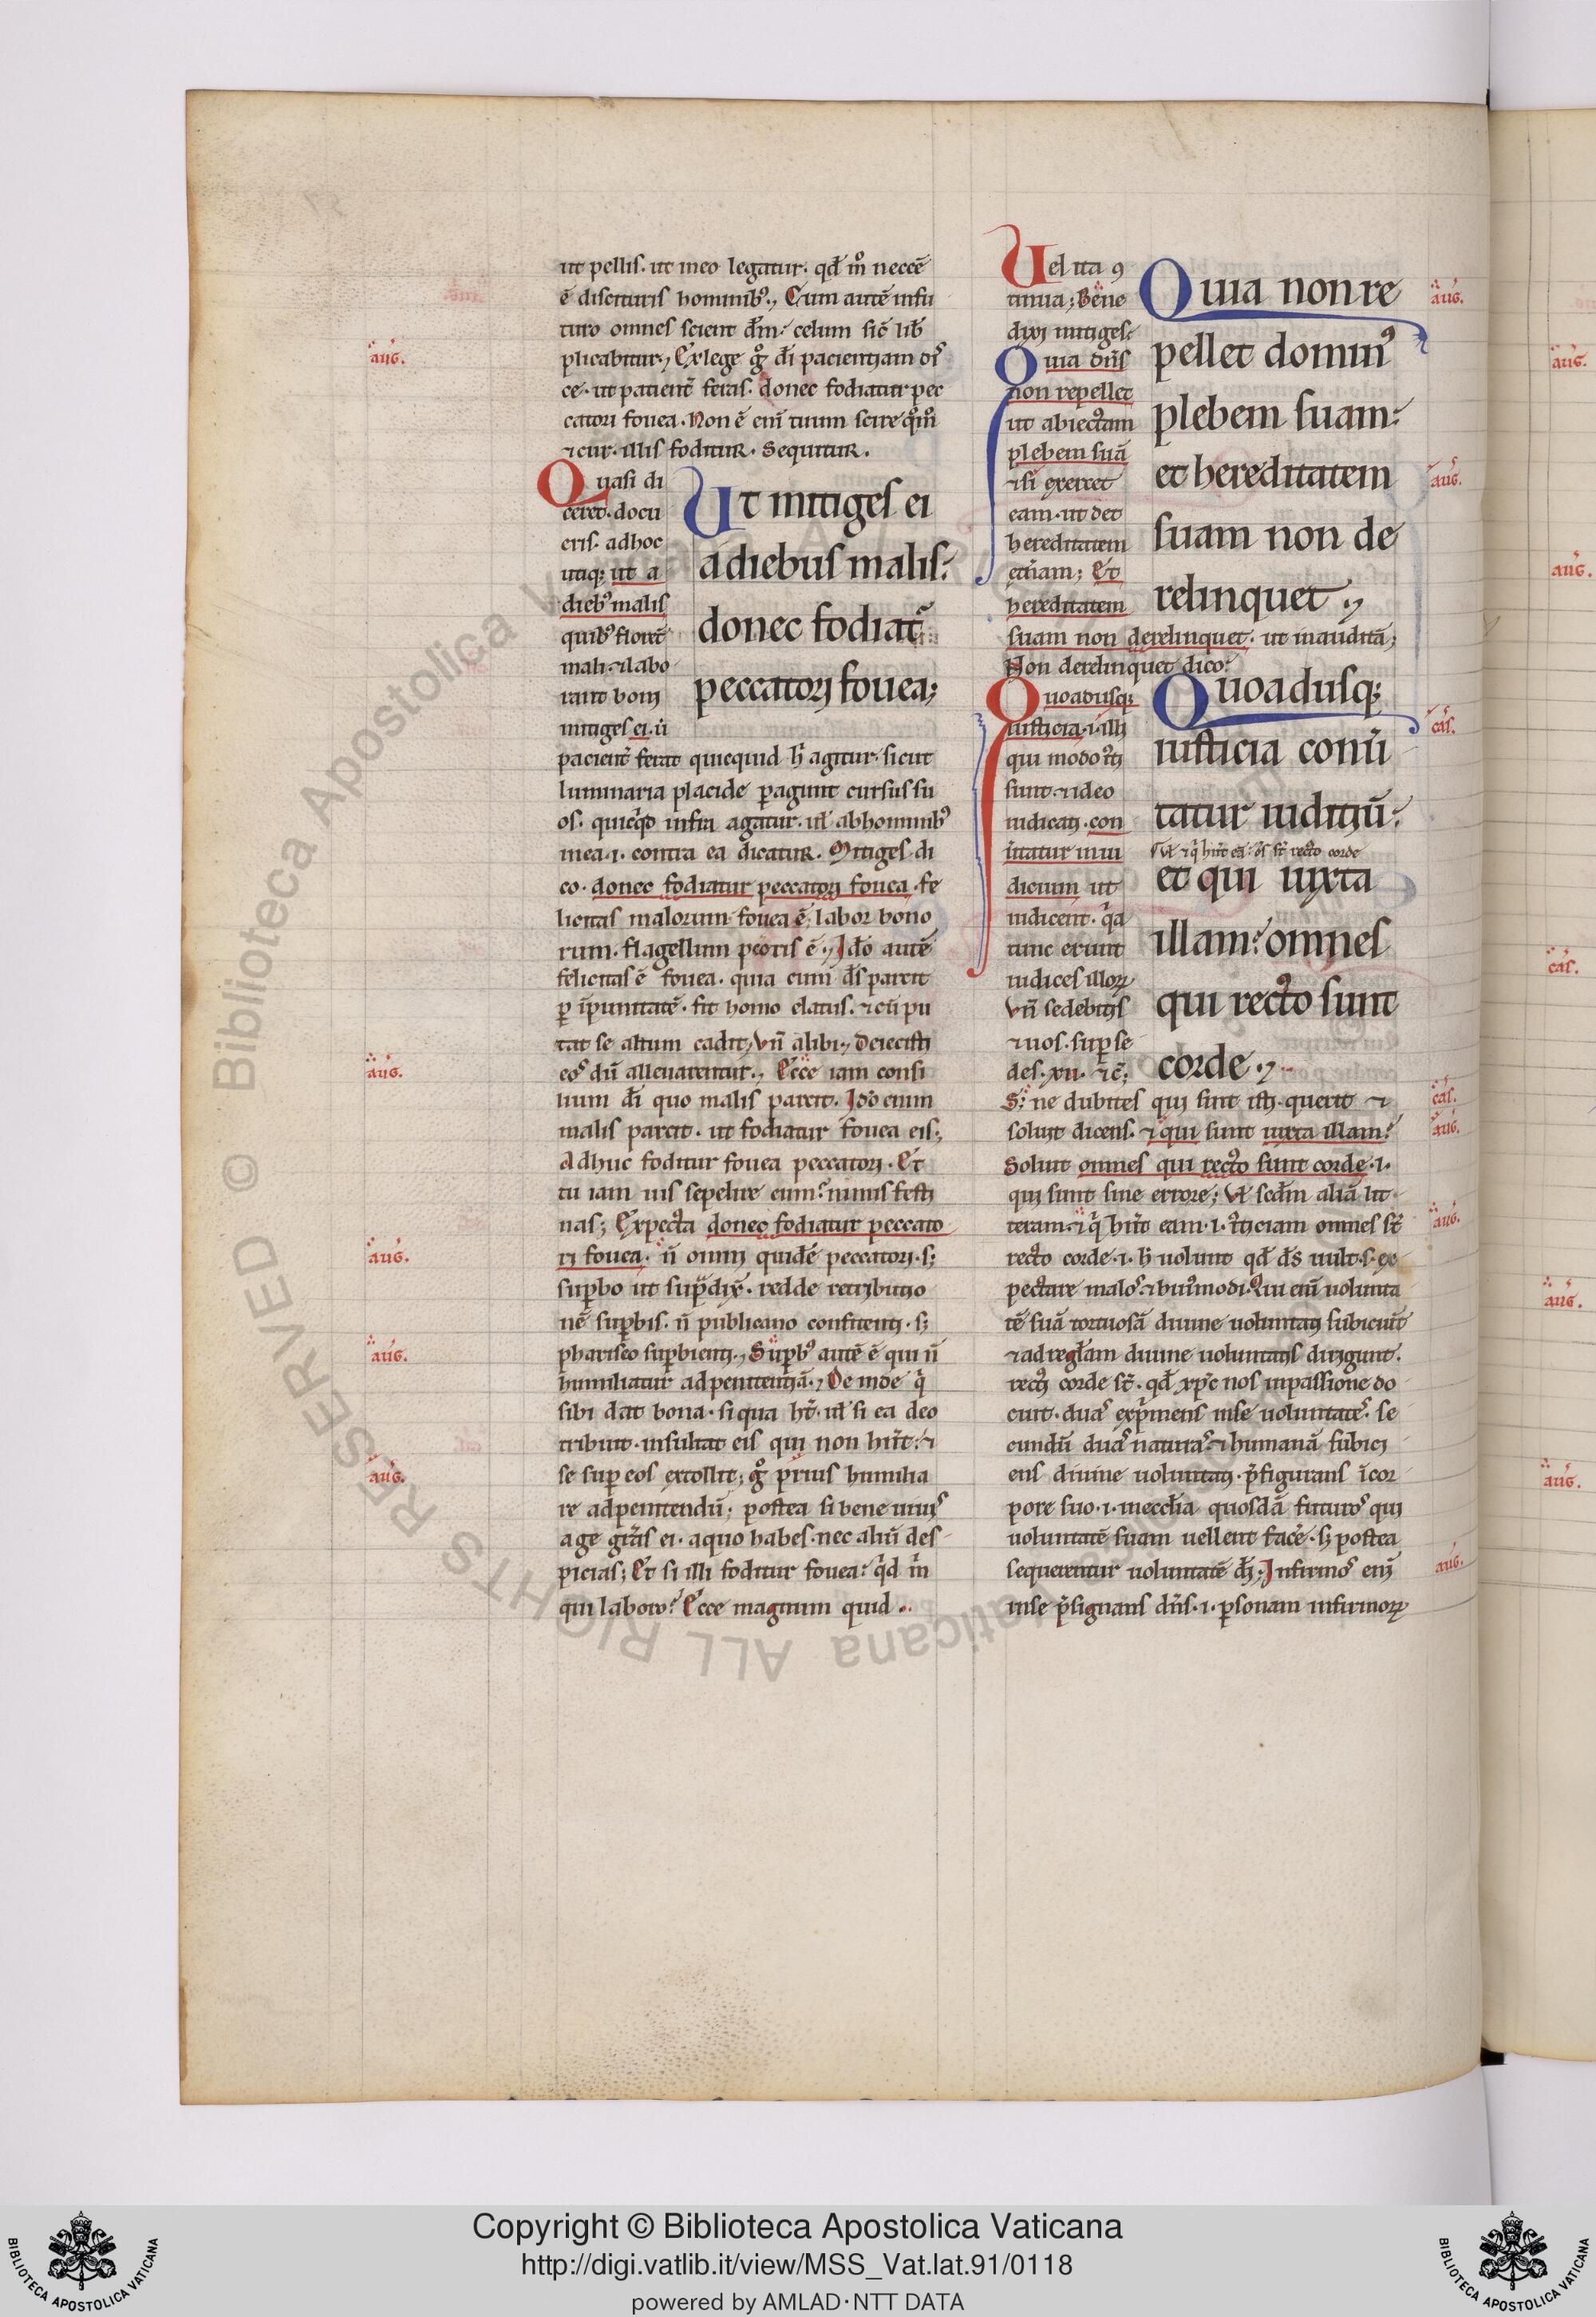 ut pellis. ut meo legatur. qd̄ m̊ neccē
ē discituris hominib⁹., Cum autē infu
turo omnes scient dm̄. celum sic̄ lib̄
plicabitur., Ex lege g̊ di̅ pacientiam diˢ
ce. ut patient̄ feras. donec fodiatur pec
catori fouea. Non ē eni̅ tuum scire q̊m̊
⁊ cur. illis foditur. Sequitur.
Quasi di
ceret. docu
eris. adhoc
utiq; ut a
dieb⁹ malis
quib⁹ florēt
mali. ⁊ labo
rant boni
mitiges ei. u̇
Ut mitiges ei
adiebus malis.
donec fodiat᷑
peccatori fouea;
pacient̄ ferat quicquid h̄ agitur. sicut
luminaria placide ꝑagunt cursus su
os. quicq̇d infra agatur. ul̄ abhominib⁹
inea. i. contra ea dicatur. Mitiges di
co. donec fodiatur peccatori fouea. fe
licitas malorum fouea ē. labor bono
rum. flagellum pc̄oris ē., Ido̅ autē
felicitas ē fouea. quia cum d̄s parcit
ꝑ i̅punitatē. fit homo elatus. ⁊ cu̅ pu
tat se altum cadit., Vn̄ alibi., Deiecisti
eoˢ du̅ alleuarentur., Ecce iam consi
lium di̅ quo malis parcit. Ido̅ enim
malis parcit. ut fodiatur fouea eis.,
Adhuc foditur fouea peccatori. Et
tu iam uis sepelire eum? nimis festi
nas; Expecta donec fodiatur peccato
ri fouea. n̄ omni quidē peccatori. s;
suꝑbo ut supradix̄. redde retributio
nē suꝑbis. n̄ publicano confitenti. s;
phariseo suꝑbienti., Suꝑb⁹ autē ē qui n̄
humiliatur ad penitentiā., De inde q̇
sibi dat bona. si qua ht̄. ul̄ si ea deo
tribuit. insultat eis qui non hn̄t. ⁊
se suꝑ eos extollit; g̊ prius humilia
re ad penitendu̅; postea si bene uiuiˢ
age gr̄as ei. a quo habes. nec aliu̅ des
picias; Et si illi foditur fouea. q̇d m̄
qui laboro? Ecce magnum quid..
Uel ita ꝯ
tinua; Bene
dixi mitiges.
Quia dn̄s
non repellet
ut abiectam
plebem suā
⁊ si exercet
eam. ut det
hereditatem
et̄nam; Et
hereditatem
Quia non re
pellet domin⁹
plebem suam.
et hereditatem
suam non de
relinquet.,
suam non derelinquet. ut inauditā;
Non derelinquet dico.
Quoadusq;
iusticia. i. illi
qui modo iu̅sti
sunt. ⁊ ideo
iudicati. con
u̅tatur in iu
dicium ut
iudicent. q̇a
tunc erunt
iudices illoꝝ
Vn̄ sedebitis
⁊ uos. suꝑ se
des. xii. ⁊c̄;
Quoadusq;
iusticia conu̅
tatur iuditiu̅.
Vel ⁊ q̇ hn̄t ea̅. o̅s st̄ recto corde
et qui iuxta
illam. omnes
qui recto sunt
corde.,
S; ne dubites qui sint isti. querit ⁊
soluit dicens. ⁊ qui sunt iuxta illam?
Soluit omnes qui recto sunt corde. i.
qui sunt sine errore; Vl̄ scdm̄ aliā lit
teram. ⁊ q̇ hn̄t eam. i. iu̅sticiam omnes st̄
recto corde. i. h̄ uolunt qd̄ d̄s uult. s. ex
pectare maloˢ. ⁊ hui⁹modi. Qui eni̅ uolunta
tē suā tortuosā diuine uoluntati subiciu̅t
⁊ ad regl̄am diuine uoluntatis dirigunt.
recti corde st̄. qd̄ xp̄c nos in passione do
cuit. duaˢ exprimens inse uoluntateˢ. se
cundu̅ duaˢ naturaˢ. ⁊ humanā subici
ens diuine uoluntati. p̄figurans i̅cor
pore suo. i. in eccl̄ia quosdā futuroˢ qui
uoluntatē suam uellent face̅. s; postea
sequerentur uoluntatē di̅; Infirmoˢ eni̅
inse p̄signans dn̄s. i. ꝑsonam infirmoꝝ
aug.
aug.
aug.
aug.
aug.
aug.
aug.
cas.
cas.
aug.
aug.
aug.
aug.
aug.
cas.
aug.
aug.
© Biblioteca Apostolica Vaticana ALL RIGHTS RESERVED
Copyright © Biblioteca Apostolica Vaticana
http://digi.vatlib.it/view/MSS_Vat.lat.91/0118
powered by AMLAD·NTT DATA
BIBLIOTECA APOSTOLICA VATICANA
BIBLIOTECA APOSTOLICA VATICANA